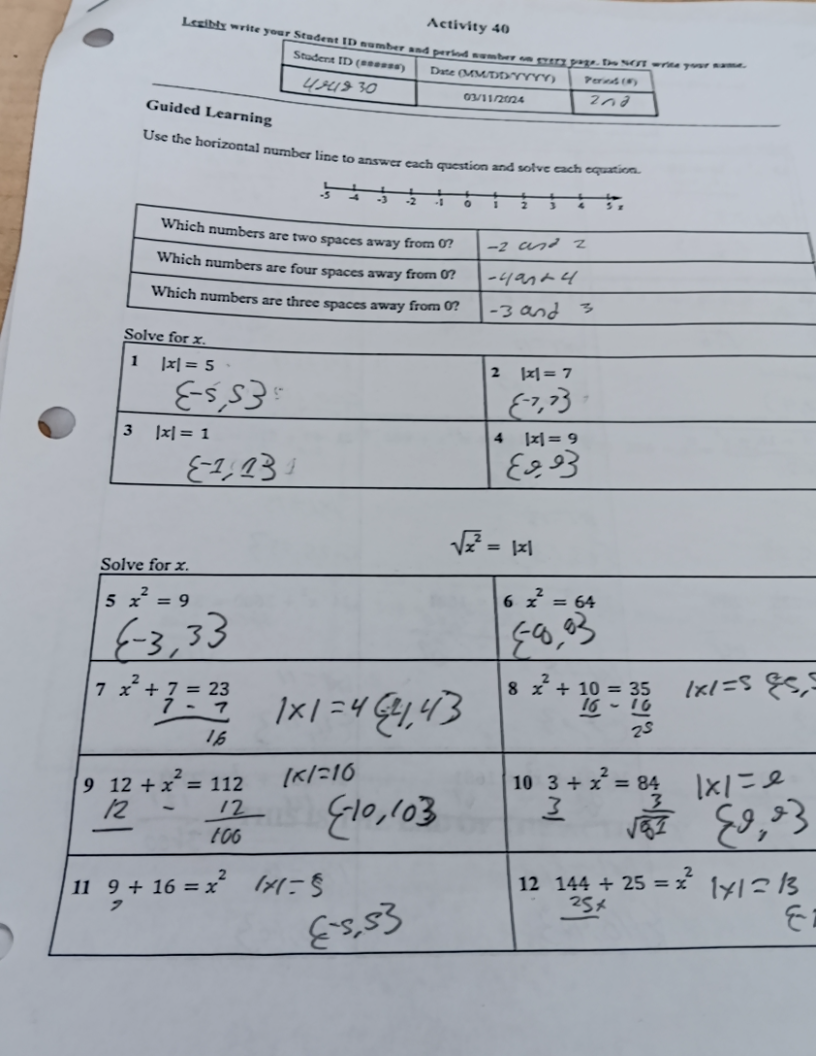 Activity 40
Legibly write your Student ID number and period number on every page. Do NOT write your name.
Student ID (######) Date (MM/DD/YYYY) Period (#)
03/11/2024 2nd
Guided Learning
Use the horizontal number line to answer each question and solve each equation.
-5 -4 -3 -2 -1 0 1 2 3 4 5 x
Which numbers are two spaces away from 0? -2 and 2
Which numbers are four spaces away from 0? -4 and 4
Which numbers are three spaces away from 0? -3 and 3
Solve for x.
1 |x| = 5 2 |x| = 7
{-5,5} {-7,7}
3 |x| = 1 4 |x| = 9
{-1,1} {9,9}
√x² = |x|
Solve for x.
5 x² = 9 6 x² = 64
{-3,3} {-8,8}
7 x² + 7 = 23 |x|=4 {-4,4} 8 x² + 10 = 35 |x|=5
7 - 7 10 - 10
16 25
9 12 + x² = 112 |x|=10 10 3 + x² = 84 |x|=9
12 - 12 {-10,10} 3 3 {9,9}
100 √81
11 9 + 16 = x² |x|=5 12 144 + 25 = x² |x|=13
9 25+
{-5,5}